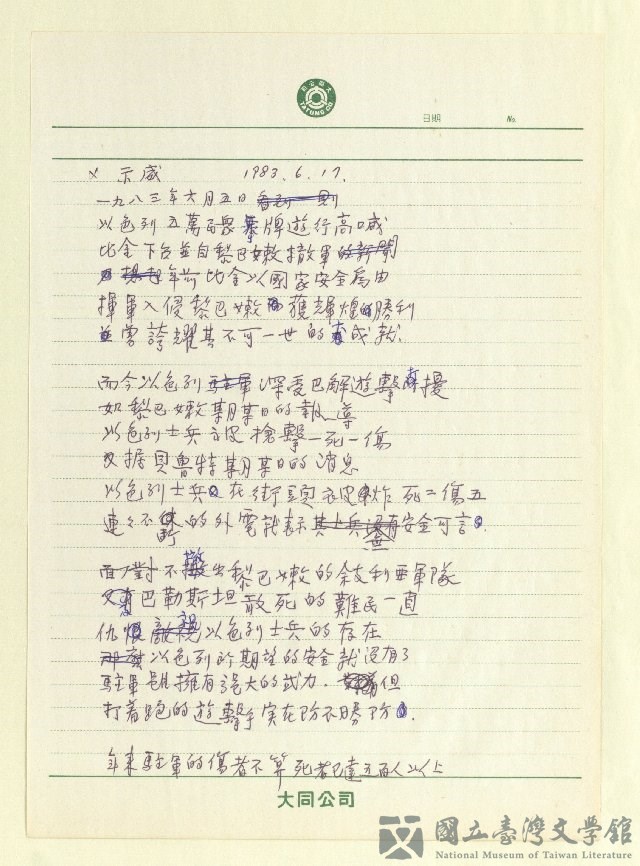 大同公司
TATUNG CO.
日期 No.
× 示威 1983.6.17.
一九八三年六月五日看到一則
以色列五萬民眾舉牌遊行高喊
比金下台並自黎巴嫩撤軍的新聞
年前比金以國家安全為由
揮軍入侵黎巴嫩獲輝煌的勝利
並曾誇耀其不可一世的成就
而今以色列駐軍深受巴解遊擊干擾
如黎巴嫩某月某日的報導
以色列士兵被槍擊一死一傷
又據貝魯特某月某日的消息
以色列士兵在街頭被炸死二傷五
連々不斷的外電就表示其士兵沒有安全可言
面對不撤出黎巴嫩的敘利亞軍隊
又有巴勒斯坦敢死的難民一直
仇視以色列士兵的存在
那麼以色列所期望的安全就沒有了
駐軍雖擁有強大的武力 但
打着跑的遊擊手実在防不勝防
年來駐軍的傷者不算死者已達五百人以上
大同公司
國立臺灣文學館
National Museum of Taiwan Literature